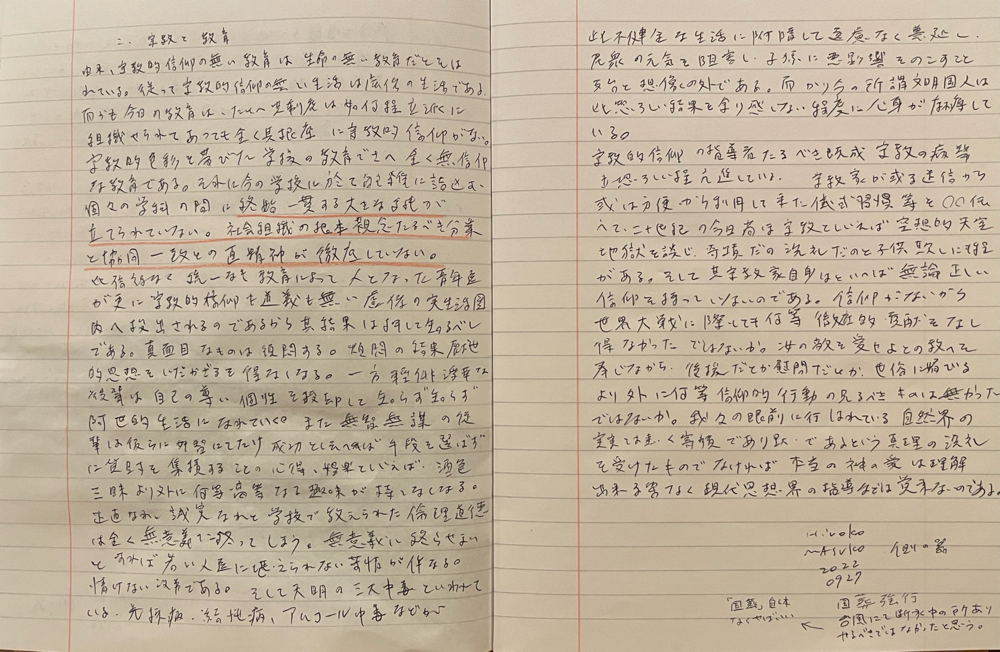 二、宗教と教育
由来、宗教的信仰の無い教育は生命の無い教育だといは
れている。従って宗教的信仰の無い生活は虚偽の生活である。
而かも今日の教育は、たとへ其制度は如何程立派に
組織せられてあっても全く其根底に宗教的信仰がない。
宗教的色彩を帯びた学校の教育でさへ全く無信仰
な教育である。それに今の学校に於て乱雑に詰込む
個々の学科の間に終始一貫する大きな系統が
立てられていない。社会組織の根本観念たるべき分業
と協同一致との真精神が徹底していない。
此信仰なく統一なき教育によって人となった青年達
が更に宗教的信仰も道義も無い虚偽の実生活圏
内へ放出されるのであるから其結果は推して知るべし
である。真面目なものは煩悶する。煩悶の結果厭世
的思想をいだかざるを得なくなる。一方軽佻浮華な
後輩は自己の尊い個性を放却して知らず知らず
阿世的生活になれていく。また無智無謀の徒
輩は仮らに外習にてだけ成功と云へば手段を選ばず
に食財を集積することの心得、娯楽といえば、酒色
三昧より外に何等高等なる趣味が持てなくなる。
正直なれ、誠実なれと学校で教えられた倫理道徳
は全く無意義で終ってしまう。無意義に終らせまい
とすれば若い人達に堪えられない苦悩が伴なる。
情けない次第である。そして文明の三大中毒といわれて
いる、花柳病、結核病、アルコール中毒などが
此不健全な生活に附随して遠慮なく蔓延し、
民衆の元気を阻害し、子孫に悪影響をのこすこと
実に想像の外である。而かも今の所謂文明国人は
此恐ろしい結果を余り感じない程度に心身が麻痺して
いる。
宗教的信仰の指導者たるべき既成宗教の病弊
も恐ろしい程亢進している。宗教家が或る迷信から
或は方便から利用して来た儀式習慣等を〇〇伝
へて、二十世紀の今日者は宗教といえば空想的天堂
と地獄を談じ、奇蹟だの洗礼だのと子供欺しに忙
がある。そして其宗教家自身はといへば無論正しい
信仰を持っていないのである。信仰がないから
世界大戦に際しても何等信仰的貢献をなし
得なかったではないか。汝の敵を愛せよとの教へを
奉じながら、後援だとか慰問だとか、世俗に媚びる
より外に何等信仰的行動の見るべきものは無かった
ではないか。我々の眼前に行はれている自然界の
事実は悉く奇蹟であり、であるという真理の洗礼
を受けたものでなければ本当の神の愛は理解
出来る筈なく現代思想界の指導などは覚束ないのである。
Hiroko
Masuko 創の器
2022
0927
国葬強行
台風にて断水中の所あり
やるべきではなかったと思う。
「国葬」自体
なくせばいい